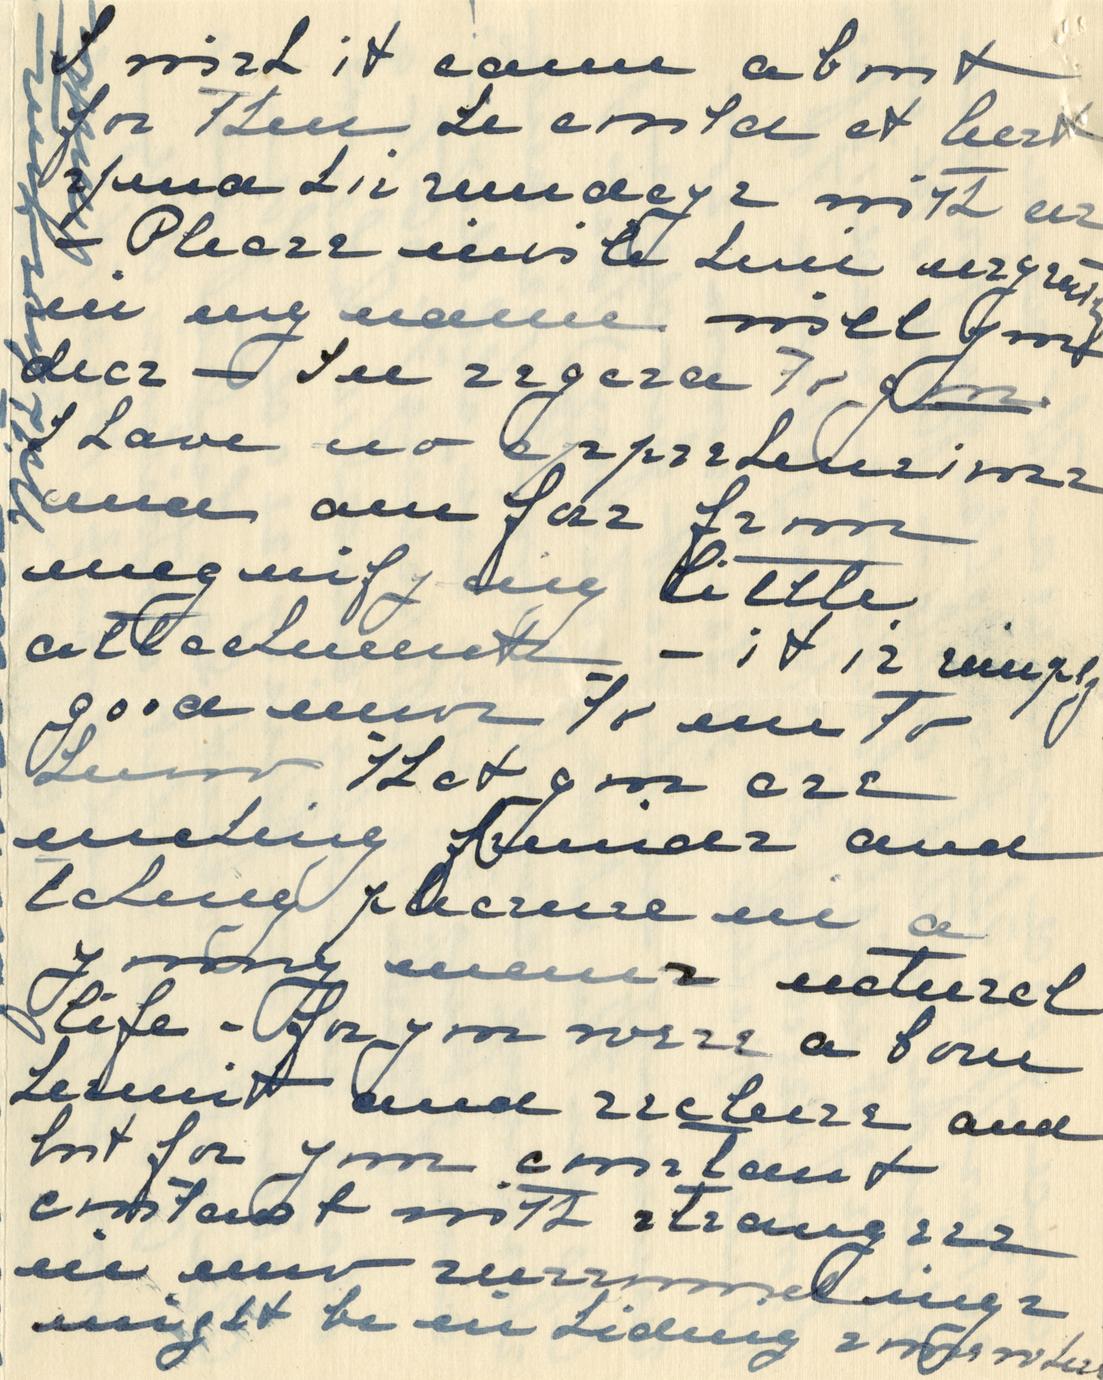 I wish it came about
for then he could at least
spend his sundays with us
+ Please invite him urgently
in my name will you
dear — In regard to you
I have no apprehensions
and am far from
magnifying little
attachments - it is simply
good news to me to
know that you are
making friends and
taking pleasure in a
young man's natural
life - For you were a born
hermit and recluse and
but for your constant
contact with strangers
in new surroundings
might be in hiding somewhere